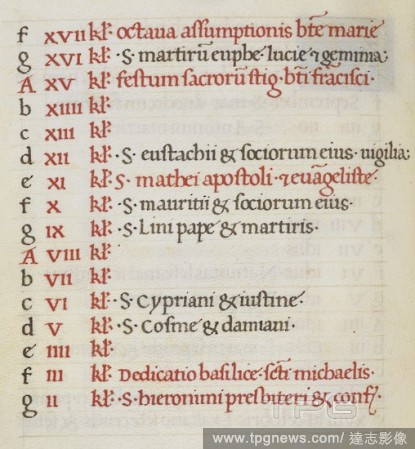 f XVII kl̄. octava assumptionis bt̄e marie
g XVI kl̄. S. martirū euphe. lucie ⁊ geminia:
A XV kl̄. festum sacrorū stig. bt̄i frācisci.
b XIIII kl̄.
c XIII kl̄.
d XII kl̄. S. eustachii & sociorum eius. vigilia:
e XI kl̄. S. mathei apostoli ⁊ evāgeliste.
f X kl̄. S. mauritii & sociorum eius.
g IX kl̄. S. Lini pape & martiris.
A VIII kl̄.
b VII kl̄.
c VI kl̄. S. Cypriani & iustine.
d V kl̄. S. Cosme & damiani.
e IIII kl̄.
f III kl̄. Dedicatio basilice scti michaelis.
g II kl̄. S. hieronimi presbiteri & conf.
TPG
www.tpgnews.com/ 達志影像